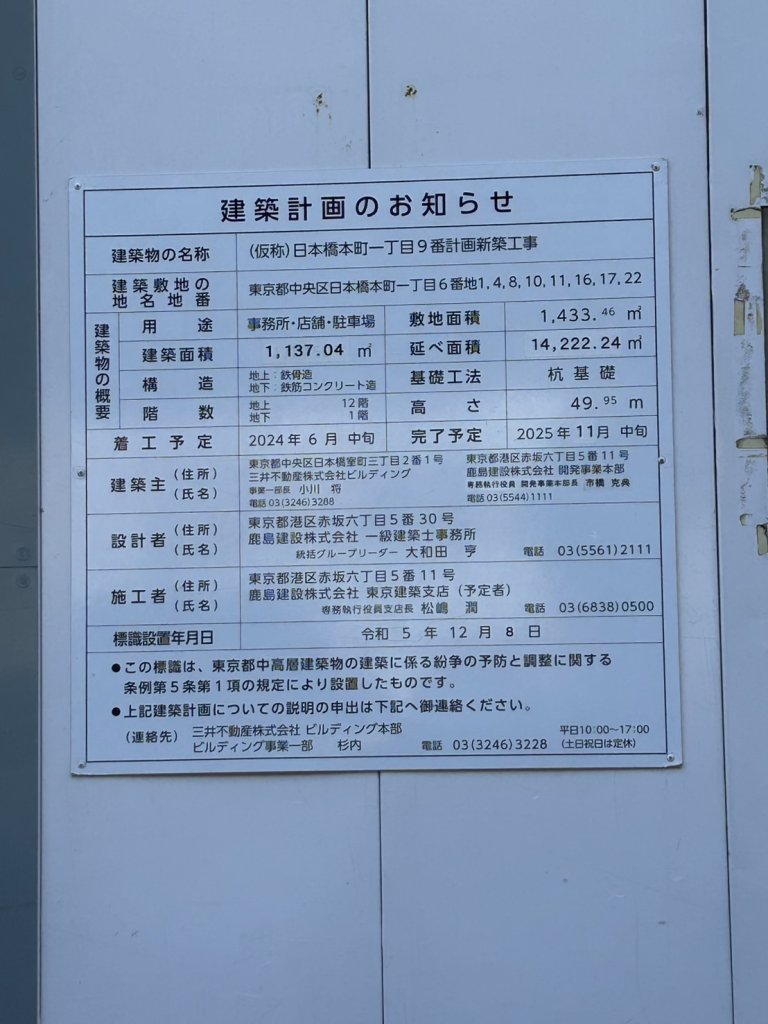 建築計画のお知らせ
建築物の名称 (仮称)日本橋本町一丁目9番計画新築工事
建築敷地の地名地番 東京都中央区日本橋本町一丁目6番地1,4,8,10,11,16,17,22
建築物の概要
用途 事務所・店舗・駐車場 敷地面積 1,433.46 ㎡
建築面積 1,137.04 ㎡ 延べ面積 14,222.24 ㎡
構造 地上：鉄骨造 基礎工法 杭基礎
地下：鉄筋コンクリート造
階数 地上 12階 高さ 49.95 m
地下 1階
着工予定 2024年6月 中旬 完了予定 2025年11月 中旬
建築主 (住所) (氏名)
東京都中央区日本橋室町三丁目2番1号
三井不動産株式会社ビルディング
事業一部長 小川 将
電話 03(3246)3288
東京都港区赤坂六丁目5番11号
鹿島建設株式会社 開発事業本部
専務執行役員 開発事業本部長 市橋 克典
電話 03(5544)1111
設計者 (住所) (氏名)
東京都港区赤坂六丁目5番30号
鹿島建設株式会社 一級建築士事務所
統括グループリーダー 大和田 亨 電話 03(5561)2111
施工者 (住所) (氏名)
東京都港区赤坂六丁目5番11号
鹿島建設株式会社 東京建築支店（予定者）
専務執行役員支店長 松嶋 潤 電話 03(6838)0500
標識設置年月日 令和 5 年 12 月 8 日
●この標識は、東京都中高層建築物の建築に係る紛争の予防と調整に関する
条例第5条第1項の規定により設置したものです。
●上記建築計画についての説明の申出は下記へ御連絡ください。
(連絡先) 三井不動産株式会社 ビルディング本部 平日10:00～17:00
ビルディング事業一部 杉内 電話 03(3246)3228 (土日祝日は定休)